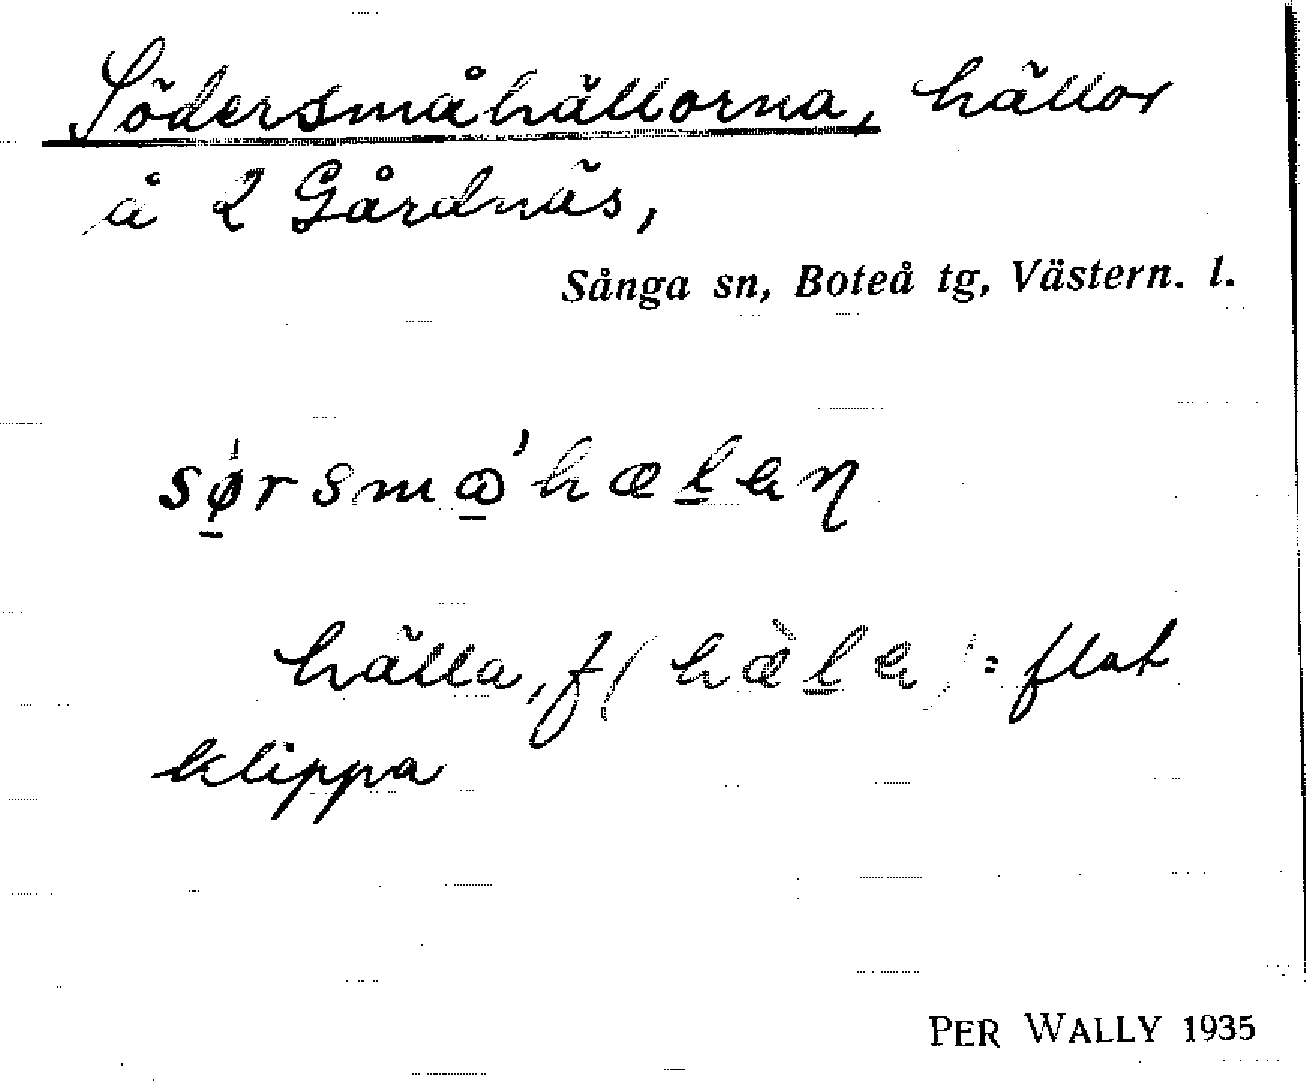 Södersmåhällorna, hällor
å 2 Gårdnäs,
Sånga sn, Boteå tg, Västern. l.
sø̱rsmɷ̱'hæḻaŋ
hälla, f (hæ̀ḻa) = flat
klippa
PER WALLY 1935